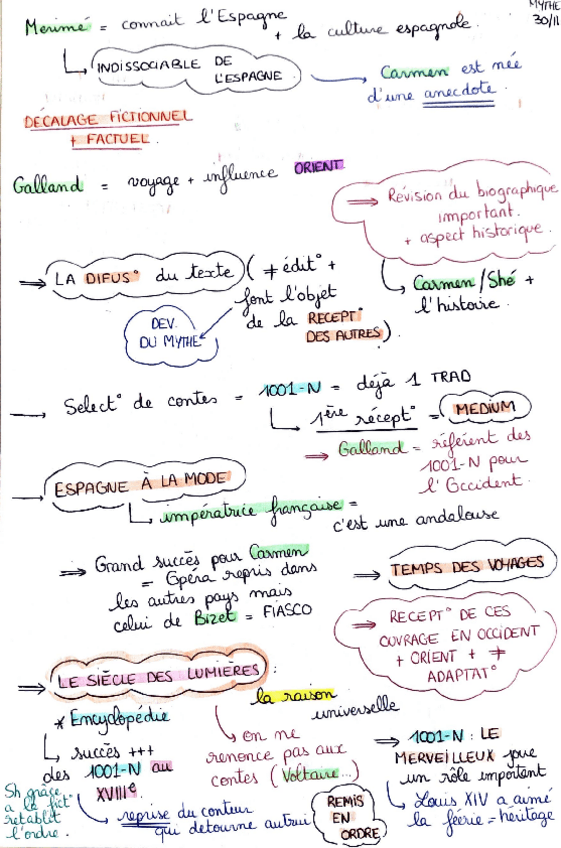 MYTHE
30/11
Merimé = connait l'Espagne
+ la culture espagnole.
INDISSOCIABLE DE
L'ESPAGNE
Carmen est née
d'une anecdote.
DÉCALAGE FICTIONNEL
+ FACTUEL.
Galland = voyage + influence ORIENT
⇒ Révision du biographique
important.
+ aspect historique.
Carmen/Shé +
l'histoire.
⇒ LA DIFUS° du texte (≠ édit° +
font l'objet
de la RECEPT°
DES AUTRES).
DEV.
DU MYTHE
→ Select° de contes = 1001-N = déjà 1 TRAD
1ère récept° = MEDIUM
⇒ Galland = référent des
1001-N pour
l'Occident.
→ ESPAGNE À LA MODE
impératrice française =
c'est une andalouse
⇒ Grand succès pour Carmen
= Opéra repris dans
les autres pays mais
celui de Bizet = FIASCO
⇒ TEMPS DES VOYAGES
⇒ RECEPT° DE CES
OUVRAGE EN OCCIDENT
+ ORIENT + ≠
ADAPTAT°
⇒ LE SIÈCLE DES LUMIÈRES :
la raison
universelle
* Encyclopédie
succès +++
des 1001-N au
XVIIIe.
on ne
renonce pas aux
contes (Voltaire...)
⇒ 1001-N : LE
MERVEILLEUX joue
un rôle important
Louis XIV a aimé
la féerie = héritage
Sh grâce
a la fict°
retablit
l'ordre.
reprise du conteur
qui détourne autrui
REMIS
EN
ORDRE